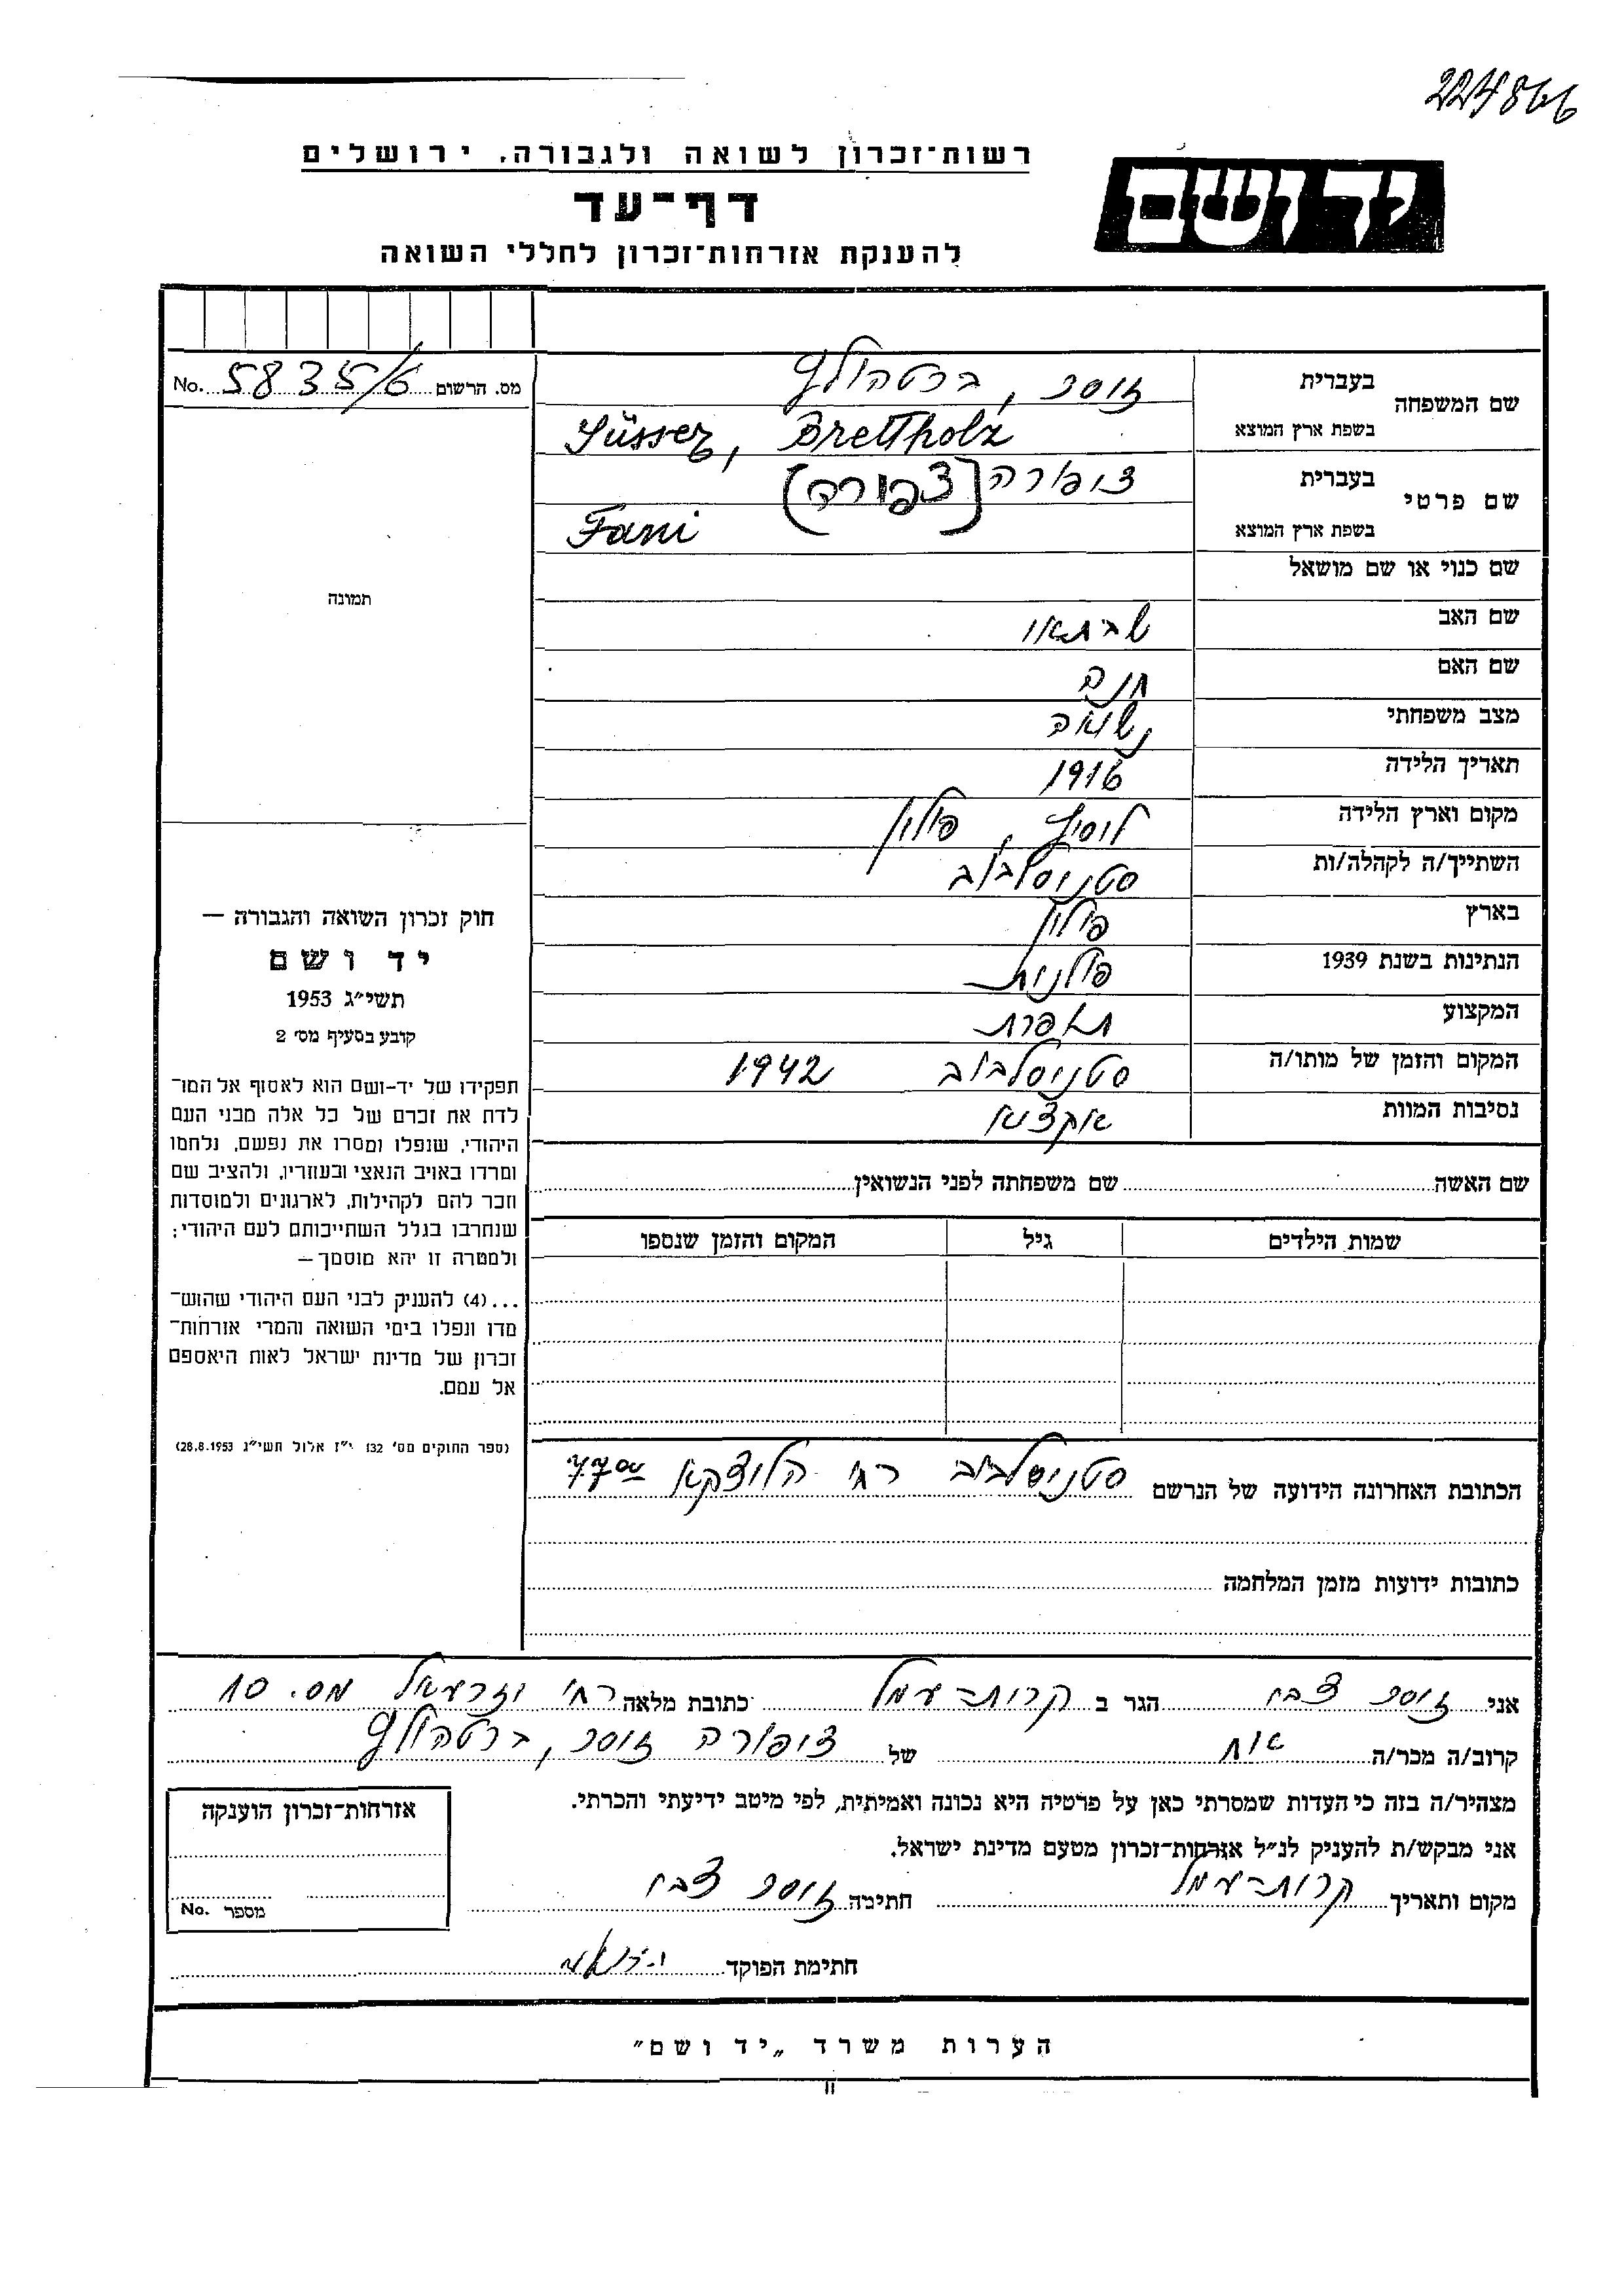 224866
יד ושם
רשות־זכרון לשואה ולגבורה, ירושלים
דף־עד
להענקת אזרחות־זכרון לחללי השואה
מס. הרשום No. 5835/6
שם המשפחה
בעברית זוסר, ברטהולץ
בשפת ארץ המוצא Süsser, Brettholz
שם פרטי
בעברית ציפורה (צפורה)
בשפת ארץ המוצא Fani
שם כנוי או שם מושאל
שם האב שבתאי
שם האם חנה
מצב משפחתי נשואה
תאריך הלידה 1916
מקום וארץ הלידה פולין
השתייך/ה לקהלה/ות סטניסלבוב
בארץ פולין
הנתינות בשנת 1939 פולנית
המקצוע תופרת
המקום והזמן של מותו/ה סטניסלבוב 1942
נסיבות המוות אקציה
תמונה
חוק זכרון השואה והגבורה —
יד ושם
תשי״ג 1953
קובע בסעיף מס׳ 2
תפקידו של יד-ושם הוא לאסוף אל המו־
לדת את זכרם של כל אלה מבני העם
היהודי, שנפלו ומסרו את נפשם, נלחמו
ומרדו באויב הנאצי ובעוזריו, ולהציב שם
וזכר להם לקהילות, לארגונים ולמוסדות
שנחרבו בגלל השתייכותם לעם היהודי;
ולמטרה זו יהא מוסמך —
...(4) להעניק לבני העם היהודי שהוש־
מדו ונפלו בימי השואה והמרי אזרחות־
זכרון של מדינת ישראל לאות היאספם
אל עמם.
(ספר החוקים מס׳ 132 י״ז אלול תשי״ג 28.8.1953)
שם האשה שם משפחתה לפני הנשואין
שמות הילדים גיל המקום והזמן שנספו
הכתובת האחרונה הידועה של הנרשם סטניסלבוב רח׳
כתובות ידועות מזמן המלחמה
אני זוסר צבי הגר ב קרית-עמל כתובת מלאה רח׳ יזרעאל מס. 10
קרוב/ה מכר/ה אח של ציפורה זוסר, ברטהולץ
מצהיר/ה בזה כי העדות שמסרתי כאן על פרטיה היא נכונה ואמיתית, לפי מיטב ידיעתי והכרתי.
אני מבקש/ת להעניק לנ״ל אזרחות־זכרון מטעם מדינת ישראל.
מקום ותאריך קרית-עמל חתימה זוסר צבי
חתימת הפוקד
אזרחות־זכרון הוענקה
מספר No.
הערות משרד „יד ושם״